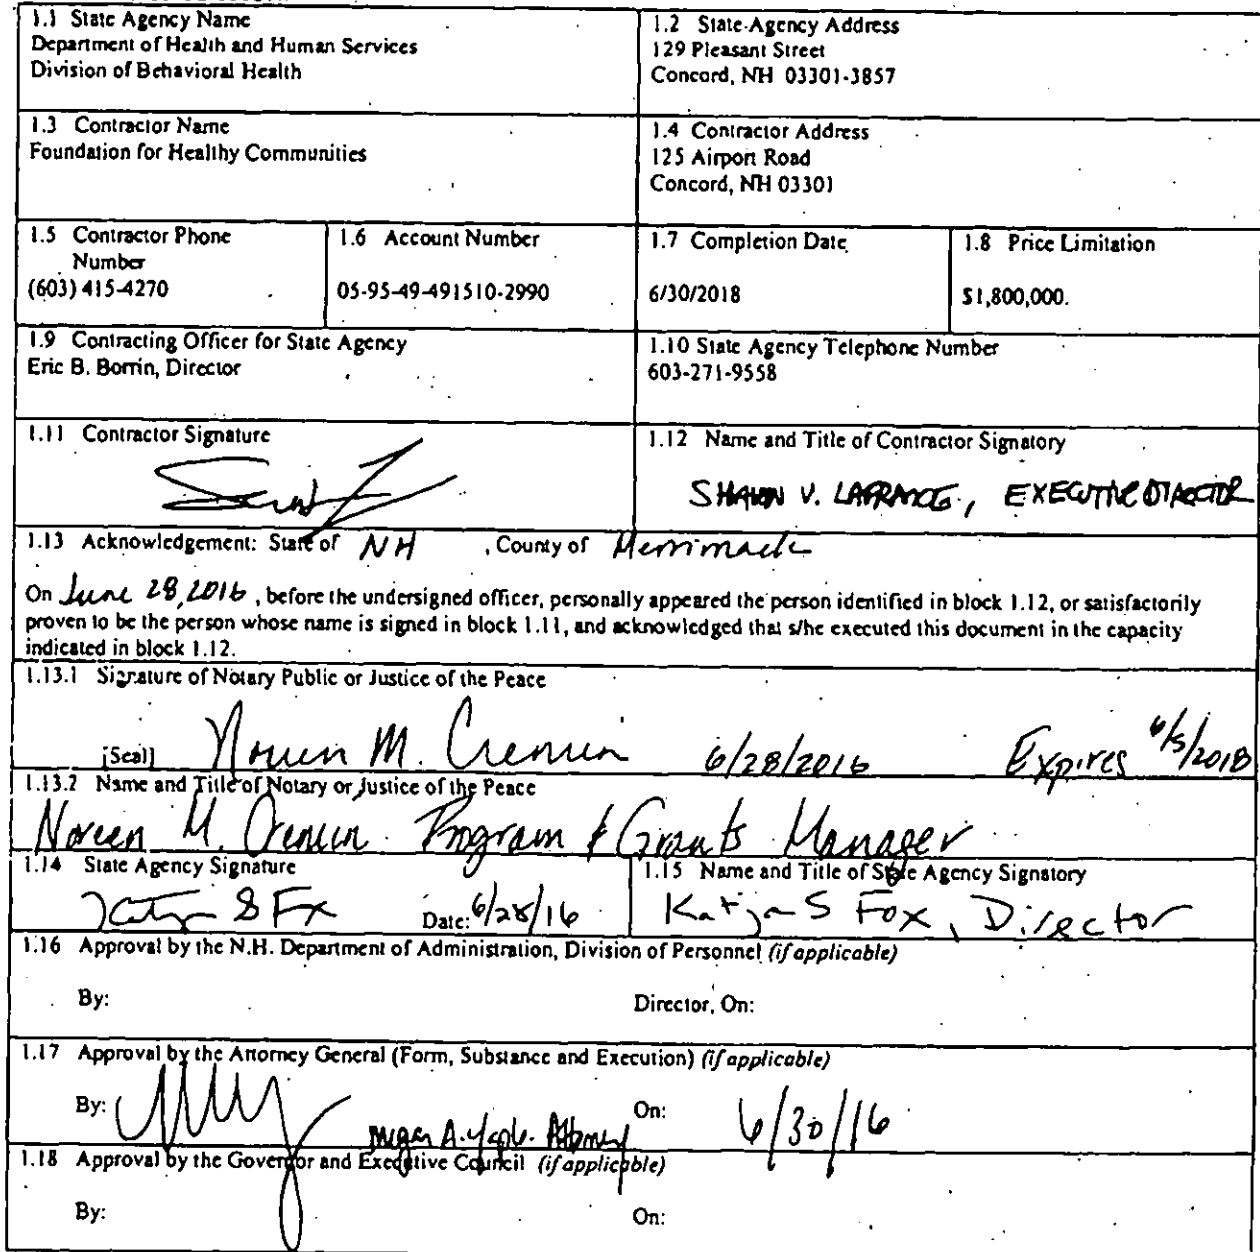 1.1 State Agency Name
Department of Health and Human Services
Division of Behavioral Health
1.2 State Agency Address
129 Pleasant Street
Concord, NH 03301-3857
1.3 Contractor Name
Foundation for Healthy Communities
1.4 Contractor Address
125 Airport Road
Concord, NH 03301
1.5 Contractor Phone
Number
(603) 415-4270
1.6 Account Number
05-95-49-491510-2990
1.7 Completion Date
6/30/2018
1.8 Price Limitation
$1,800,000.
1.9 Contracting Officer for State Agency
Eric B. Borrin, Director
1.10 State Agency Telephone Number
603-271-9558
1.11 Contractor Signature
1.12 Name and Title of Contractor Signatory
SHAWN V. LAFRANCE, EXECUTIVE DIRECTOR
1.13 Acknowledgement: State of NH , County of Merrimack
On June 28, 2016 , before the undersigned officer, personally appeared the person identified in block 1.12, or satisfactorily
proven to be the person whose name is signed in block 1.11, and acknowledged that s/he executed this document in the capacity
indicated in block 1.12.
1.13.1 Signature of Notary Public or Justice of the Peace
[Seal] Noreen M. Cremin 6/28/2016 Expires 6/5/2018
1.13.2 Name and Title of Notary or Justice of the Peace
Noreen M. Cremin Program & Grants Manager
1.14 State Agency Signature
Katja S Fox Date: 6/28/16
1.15 Name and Title of State Agency Signatory
Katja S Fox, Director
1.16 Approval by the N.H. Department of Administration, Division of Personnel (if applicable)
By: Director, On:
1.17 Approval by the Attorney General (Form, Substance and Execution) (if applicable)
By: Megan A. Attorney On: 6/30/16
1.18 Approval by the Governor and Executive Council (if applicable)
By: On: